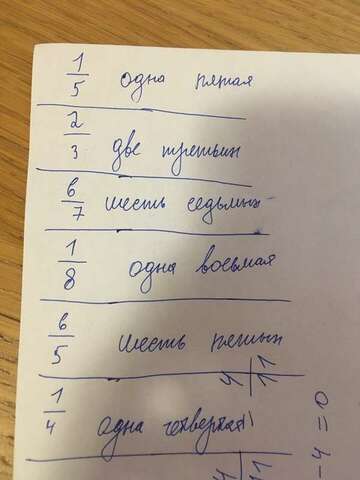 1/5 одна пятая
2/3 две третьих
6/7 шесть седьмых
1/8 одна восьмая
6/5 шесть пятых
4 11
1/4 одна четвертая
- 4 = 0
4 11